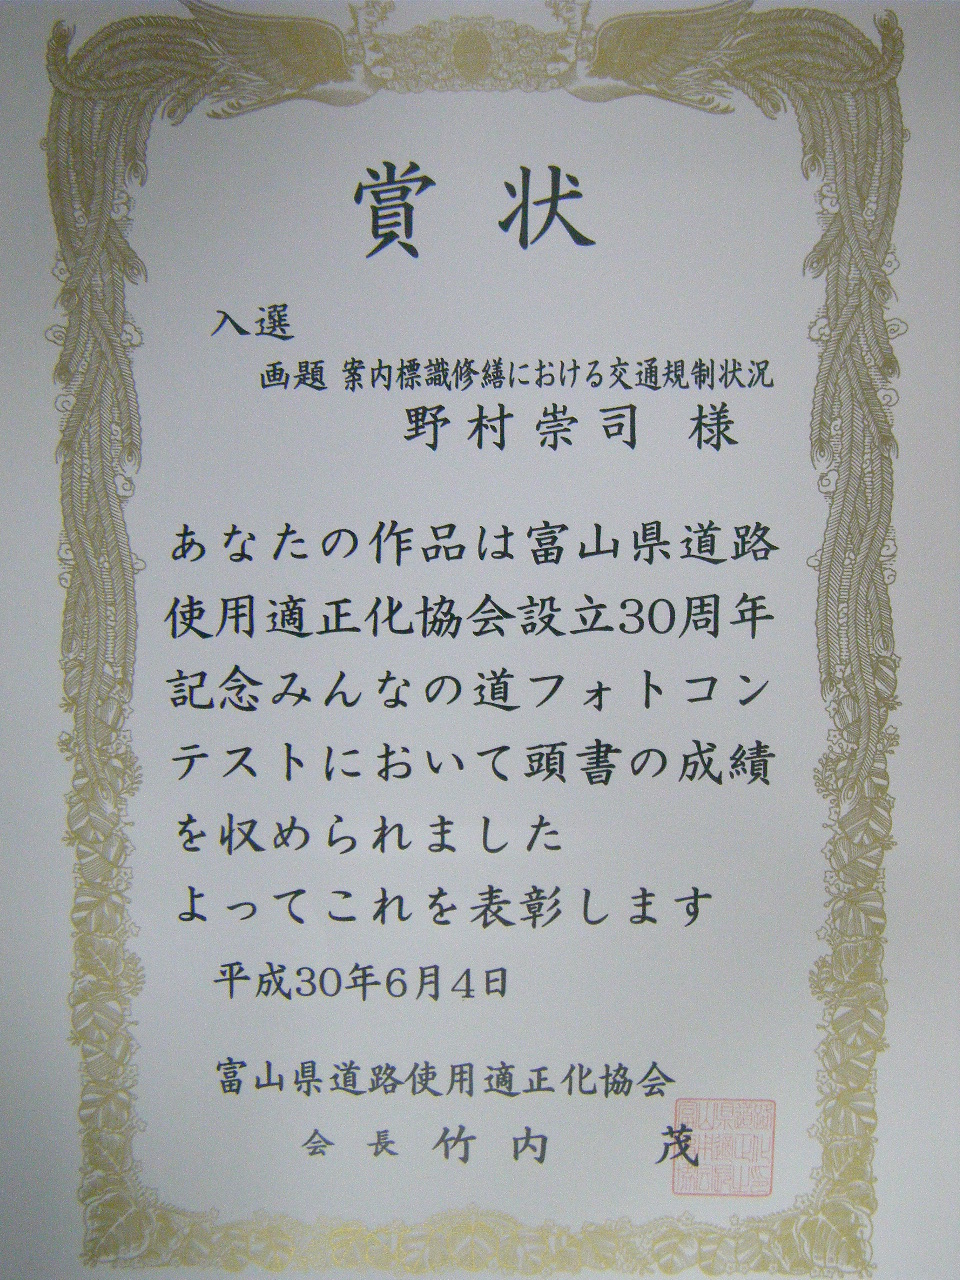 賞状
入選
画題 案内標識修繕における交通規制状況
野村崇司 様
あなたの作品は富山県道路
使用適正化協会設立30周年
記念みんなの道フォトコン
テストにおいて頭書の成績
を収められました
よってこれを表彰します
平成30年6月4日
富山県道路使用適正化協会
会長 竹内 茂